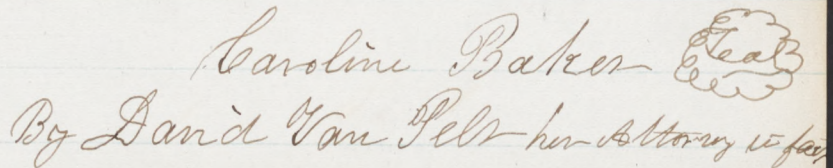 Caroline Baker Seal
By David Van Pelt her Attorney in fac